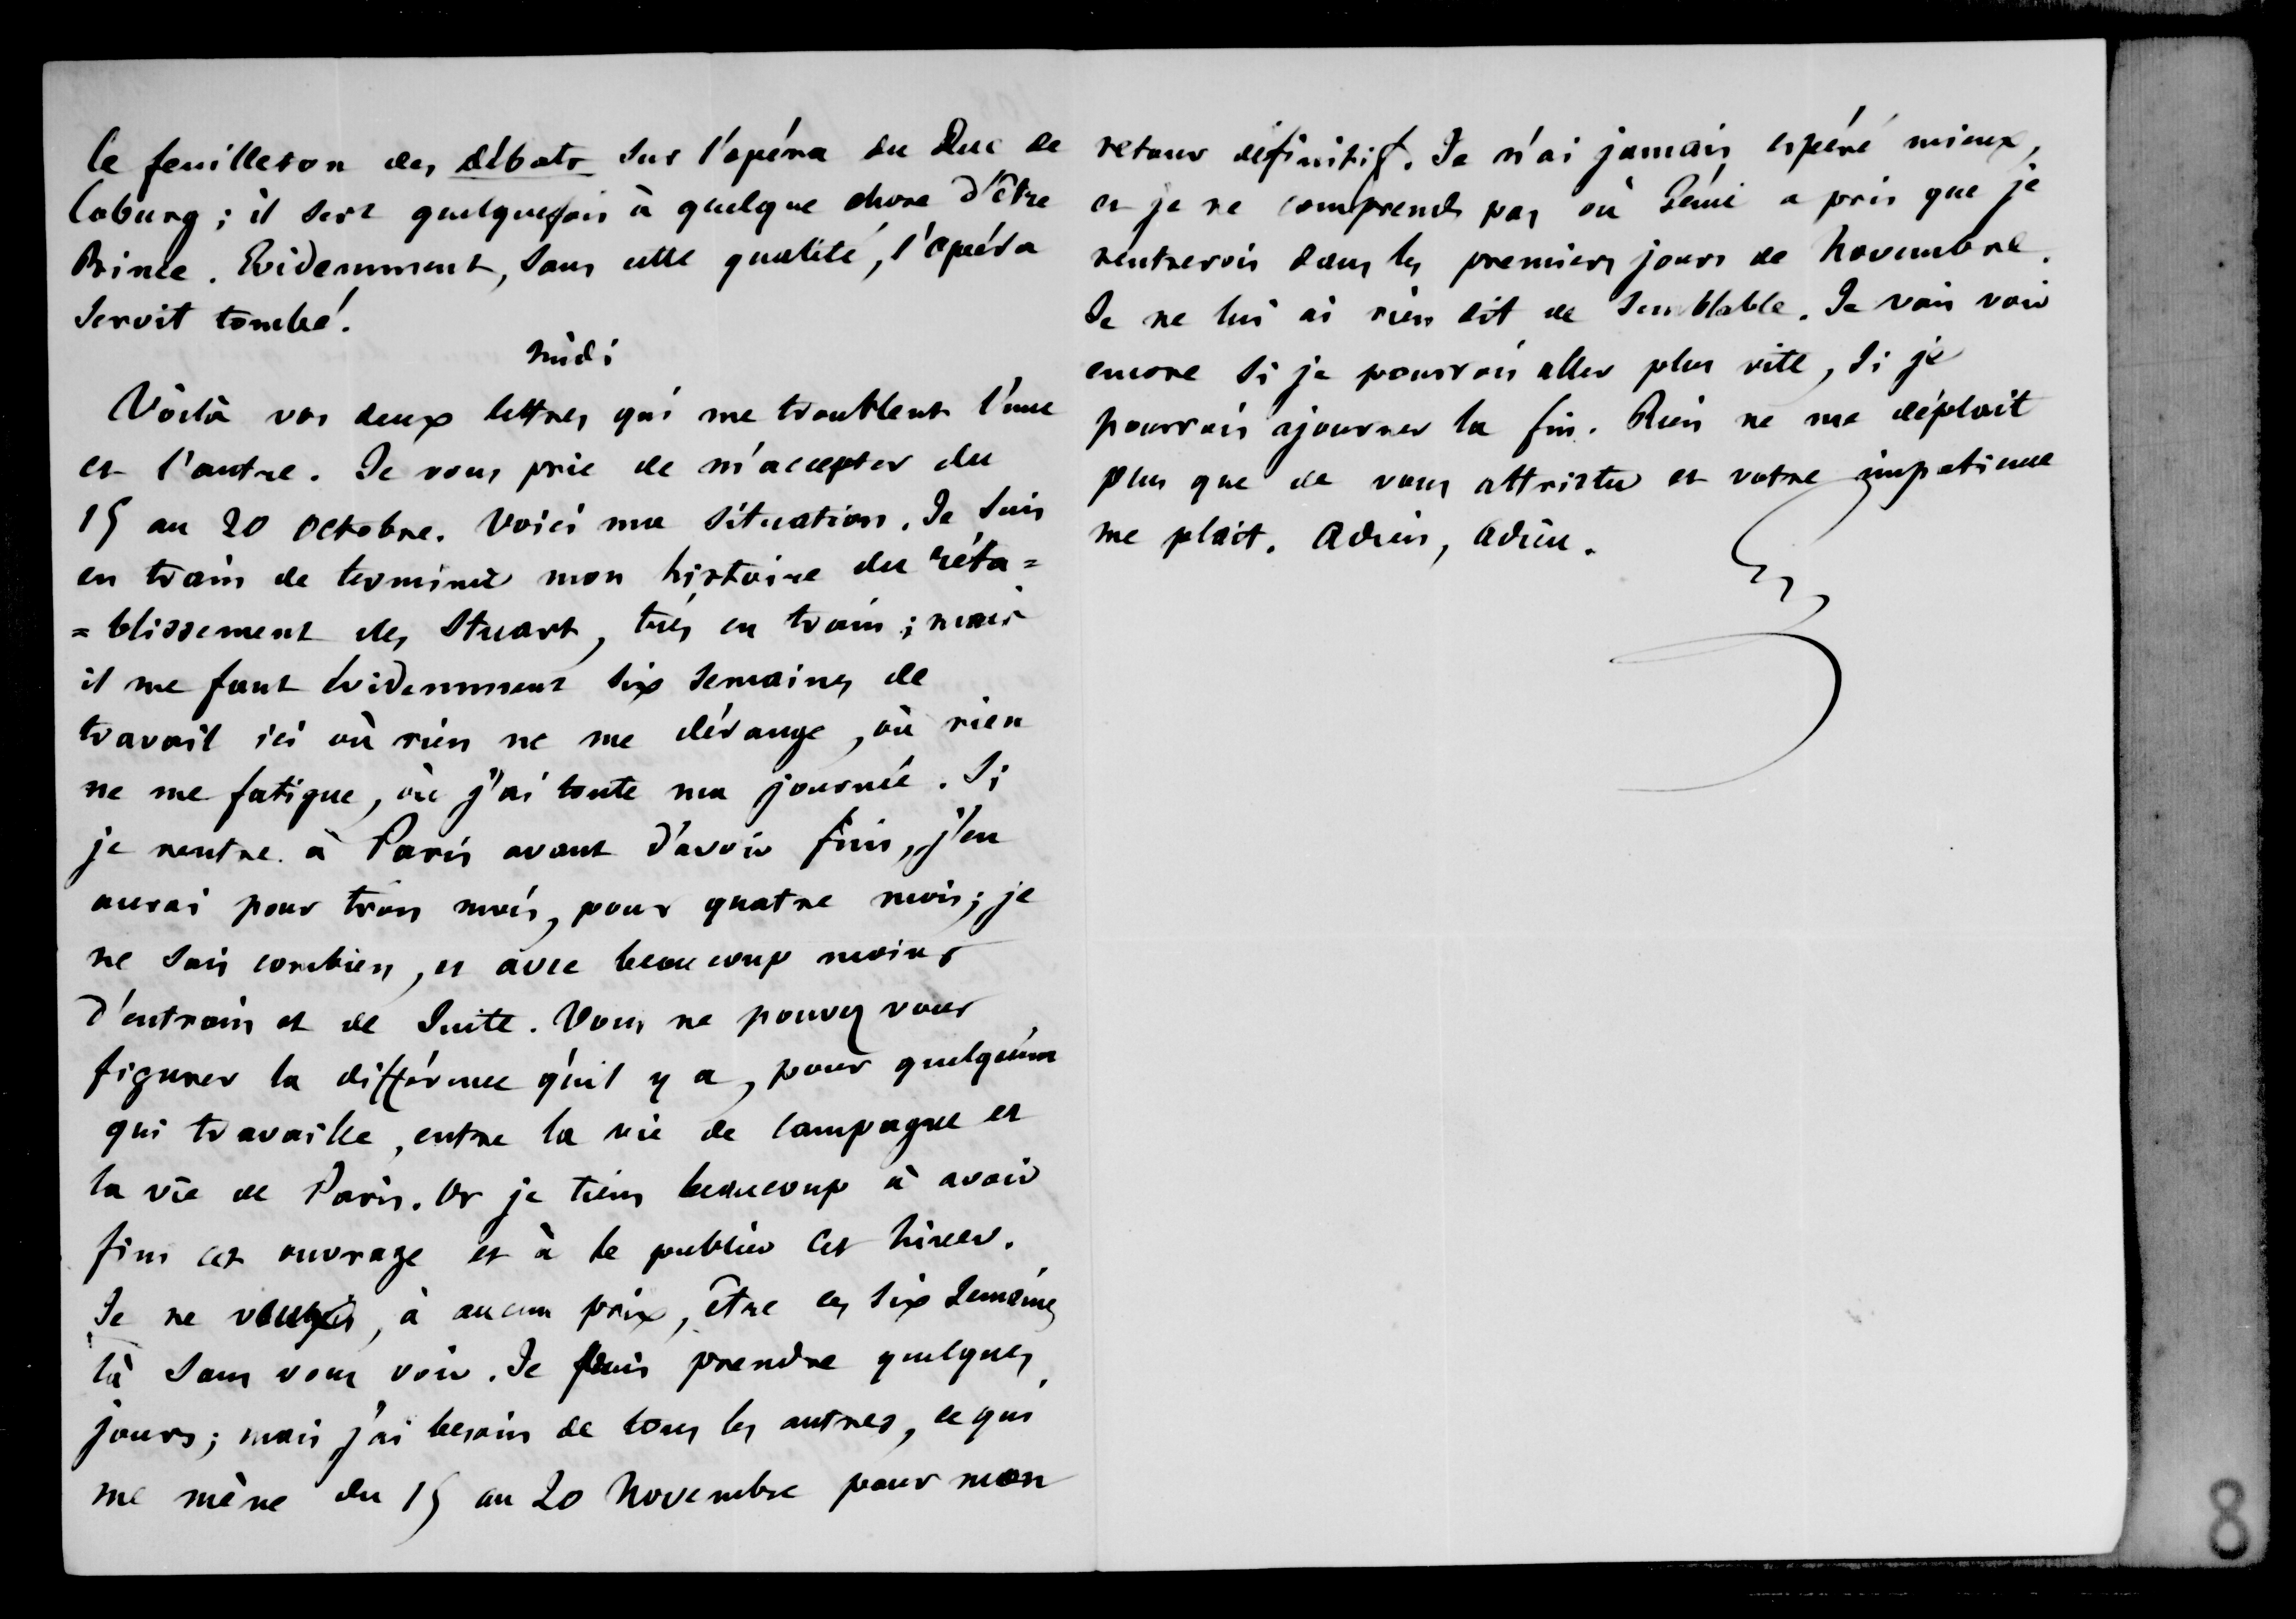 le feuilleton des débats sur l'opéra du Duc de
Coburg ; il sert quelquefois à quelque chose d'être
Prince. Evidemment, sans cette qualité, l'opéra
seroit tombé.
Midi
Voilà vos deux lettres qui me troublent l'une
et l'autre. Je vous prie de m'accepter du
15 au 20 octobre. Voici ma situation. Je suis
en train de terminer mon histoire du réta=
=blissement des Stuart, très en train ; mais
il me faut évidemment six semaines de
travail ici où rien ne me dérange, où rien
ne me fatigue, où j'ai toute ma journée. Si
je rentre à Paris avant d'avoir fini, j'en
aurai pour trois mois, pour quatre mois ; je
ne sais combien, et avec beaucoup moins
d'entrain et de suite. Vous ne pouvez vous
figurer la différence qu'il y a, pour quelqu'un
qui travaille, entre la vie de campagne et
la vie de Paris. Or je tiens beaucoup à avoir
fini cet ouvrage et à le publier cet hiver.
Je ne , à aucun prix, être ces six semaines
là sans vous voir. Je puis prendre quelques
jours ; mais j'ai besoin de tous les autres, ce qui
me mène du 15 au 20 Novembre pour mon
retour définitif. Je n'ai jamais espéré mieux,
et je ne comprends pas où Génie a pris que je
rentrerois dans les premiers jours de Novembre.
Je ne lui ai rien dit de semblable. Je vais voir
encore si je pourrois aller plus vite, si je
pourrois ajourner la fin. Rien ne me déplait
plus que de vous attrister et votre impatience
me plait. Adieu, adieu.
8